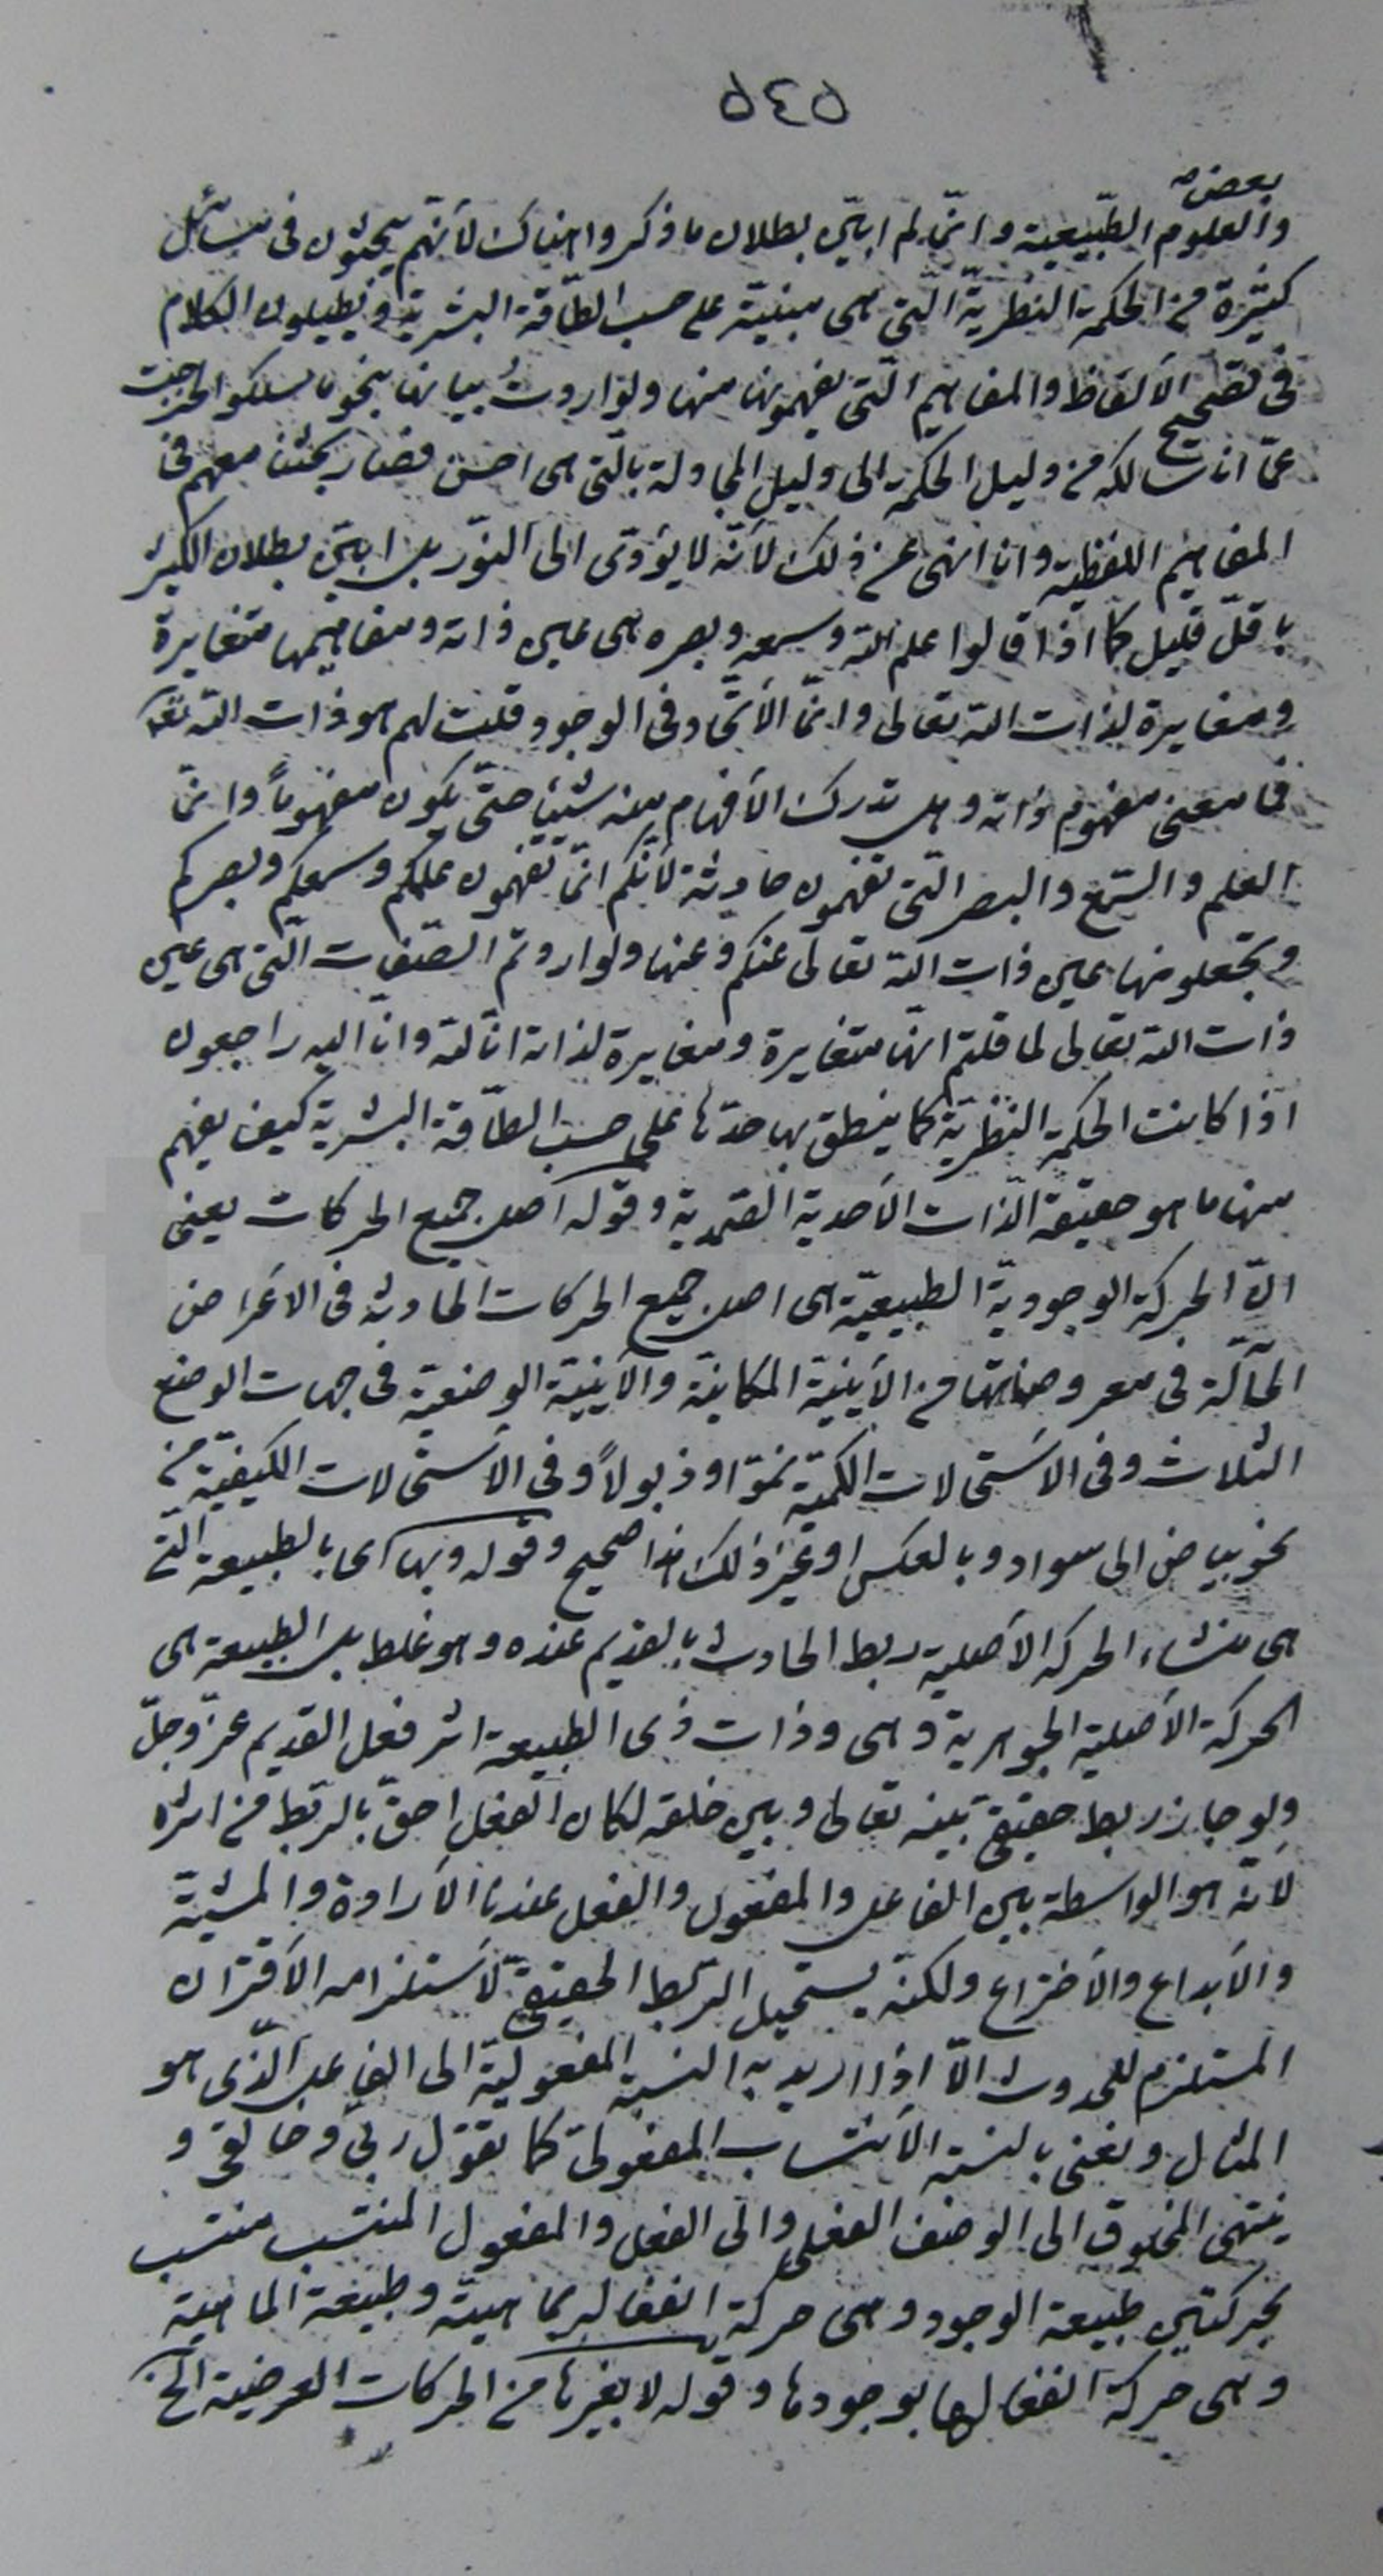 ٥٤٥
بعض
والعلوم الطّبيعية وانّما لم ابيّن بطلان ما ذكروا هناك لأنّهم يبحثون فى مسائل
كثيرة من الحكمة النظريّة الّتى هى مبنيّة على حسب الطّاقة البشرية ويطيلون الكلام
فى تصحيح الألفاظ والمفاهيم الّتى يفهمونها منها ولو اردتُ بيانها بنحو ما سلكوا لخرجت
عمّا انا سالكه من دليل الحكمة الى دليل المجادلة بالّتى هى احسن فصار بحثنا معهم فى
المفاهيم اللفظية وانا انهى عن ذلك لأنّه لا يؤدّى الى النّور بل ابيّن بطلان الكثير
باقلّ قليل كما اذا قالوا علم اللّه وسمعه وبصره هى عين ذاته ومفاهيمها متغايرة
ومغايرة لذات اللّه تعالى وانّما الأتّحاد فى الوجود قلت لهم هو ذات اللّه تعا
فما معنى مفهوم ذاته وهل تدرك الأفهام منه شيئا حتّى يكون مفهوماً وانّما
العلم والسّمع والبصر الّتى تفهمون حادثة لأنّكم انّما تفهمون علمكم وسمعكم وبصركم
وتجعلونها عين ذات اللّه تعالى عنكم وعنها ولو اردتم الصّفات الّتى هى عين
ذات اللّه تعالى لما قلتم انّها متغايرة ومغايرة لذاته انّا للّه وانّا اليه راجعون
اذا كانت الحكمة النظريّة كما ينطق بها حدّها على حسب الطّاقة البشرية كيف يفهم
منها ما هو حقيقة الذّات الأحدية الصّمدية وقوله اصل جميع الحركات يعنى
انّ الحركة الوجوديّة الطبيعيّة هى اصل جميع الحركات الحادثة فى الاعراض
الحآلّة فى معروضاتها من الأينيّة المكانيّة والأينيّة الوضعيّة فى جهات الوضع
الثلاث وفى الاستحالات الكميّة نموّا وذبولاً وفى الأستحالات الكيفيّة من
نحو بياض الى سواد وبالعكس او غير ذلك هذا صحيح وقوله وبها اى بالطبيعة الّتى
هى منشاء الحركة الأصلية ربط الحادث بالقديم عنده وهو غلط بل الطبيعة هى
الحركة الأصلية الجوهرية وهى وذات ذى الطبيعة اثر فعل القديم عزّ وجلّ
ولو جاز ربط حقيقىّ بينه تعالى وبين خلقه لكان الفعل احقّ بالربط من اثره
لأنّه هو الواسطة بين الفاعل والمفعول والفعل عندنا الأرادة والمشيّة
والأبداع والأختراع ولكنّه يستحيل الرّبط الحقيقىّ لأستلزامه الأقتران
المستلزم للحدوث الّا اذا اريد به النسبة المفعوليّة الى الفاعل الّذى هو
المثال ونعنى بالنسبة الأنتساب المفعولىّ كما تقول ربّى وخالقى و
ينتهى المخلوق الى الوصف الفعلى والى الفعل والمفعول المنتسب منتسب
بحركتين طبيعة الوجود وهى حركة انفعاله بماهيته وطبيعة الماهية
وهى حركة انفعالها بوجودها وقوله لا بغيرها من الحركات العرضية الخ